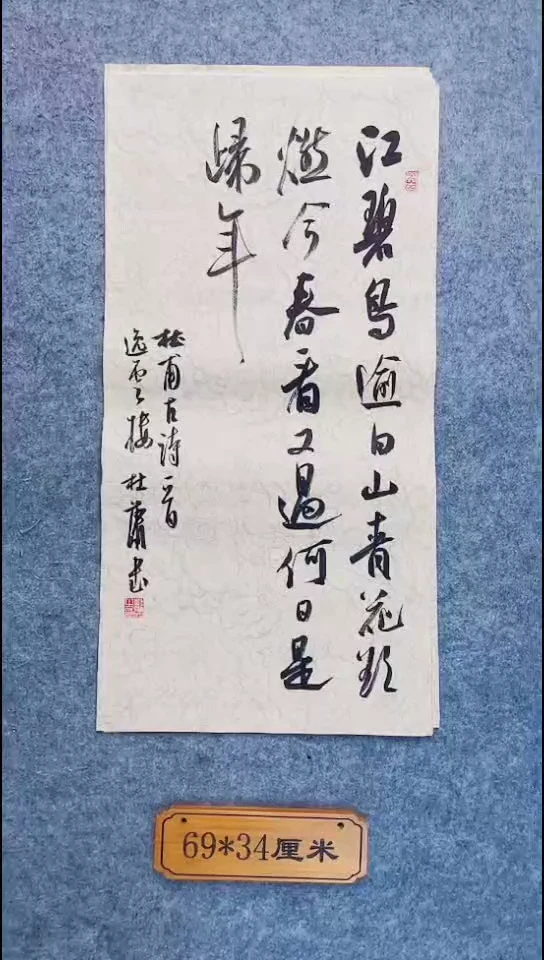 江碧鸟逾白山青花欲
燃今春看又過何日是
歸年
杜甫古诗一首
逸雲楼 杜萧书
69*34厘米